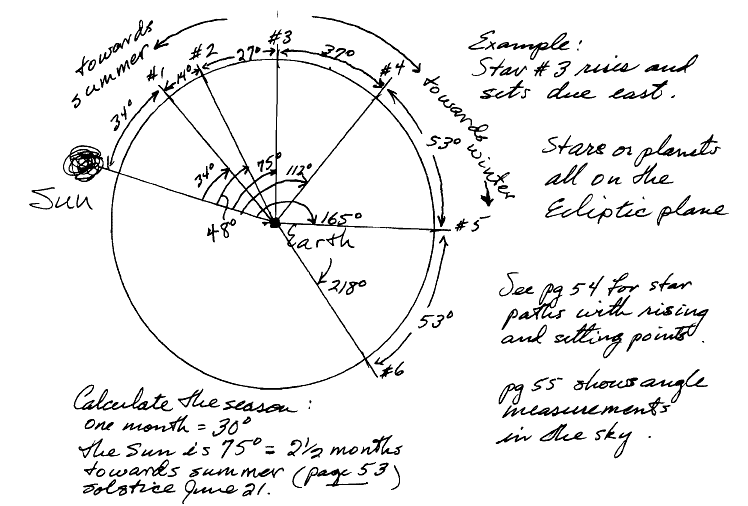 towards
summer
#1
#2
#3
#4
14°
27°
37°
34°
towards
winter
53°
Sun
34°
48°
75°
112°
165°
Earth
#5
218°
53°
#6
Example:
Star #3 rises and
sets due east.
Stars or planets
all on the
Ecliptic plane
See pg 54 for star
paths with rising
and setting points.
pg 55 shows angle
measurements
in the sky.
Calculate the season:
one month = 30°
the Sun is 75° = 2½ months
towards summer (page 53)
solstice June 21.